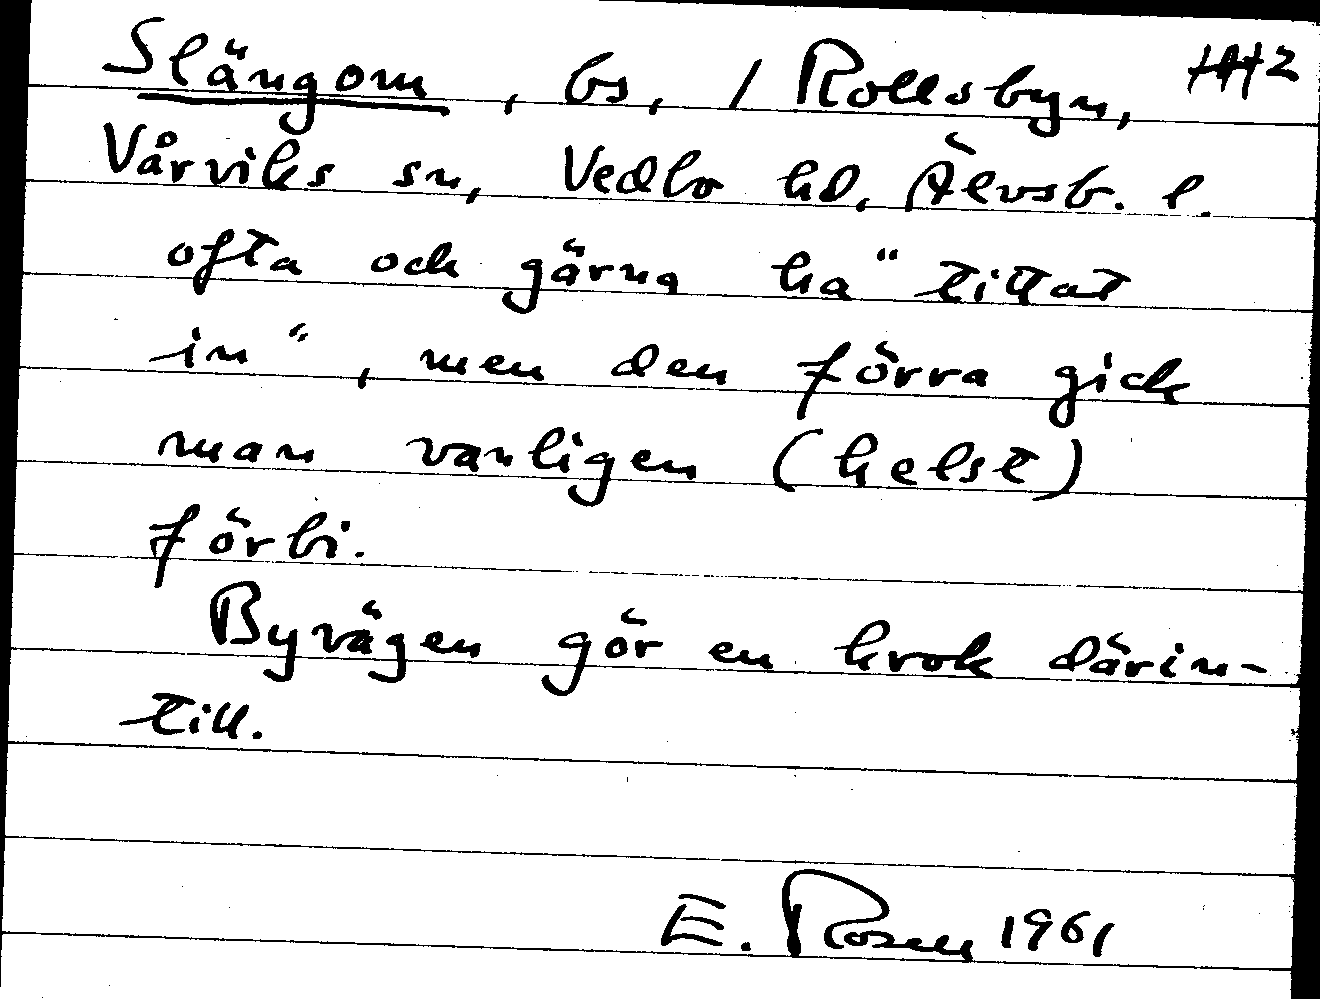 Slängom, bs, / Rollsbyn,
Vårviks sn, Vedbo hd, Älvsb. l.
ofta och gärna ha "tittat
in", men den förra gick
man vanligen (helst)
förbi.
Byvägen gör en krok därin-
till.
E. Rosen 1961